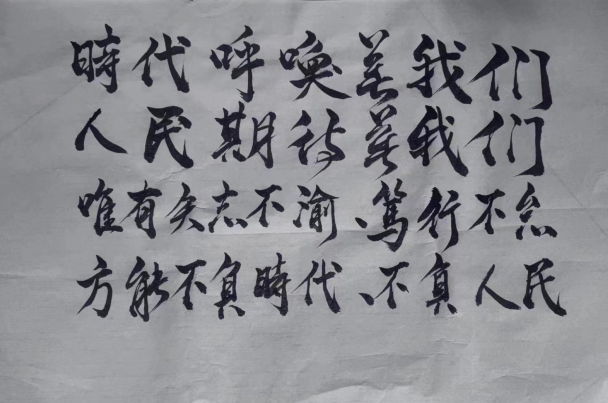 時代呼喚著我们
人民期待著我们
唯有矢志不渝、篤行不怠
方能不負時代、不負人民